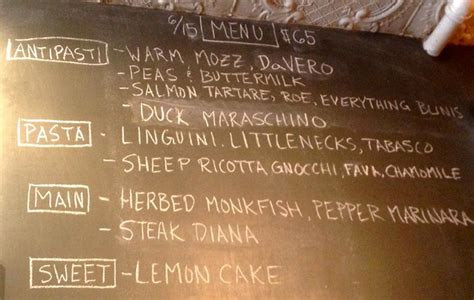 6/15 MENU $65
ANTIPASTI - WARM, MOZZ, DAVERO
- PEAS & BUTTERMILK
- SALMON TARTARE, ROE, EVERYTHING BLINIS
- DUCK MARASCHINO
PASTA - LINGUINI. LITTLENECKS, TABASCO
- SHEEP RICOTTA GNOCCHI, FAVA, CHAMOMILE
MAIN - HERBED MONKFISH, PEPPER MARINARA
- STEAK DIANA
SWEET - LEMON CAKE